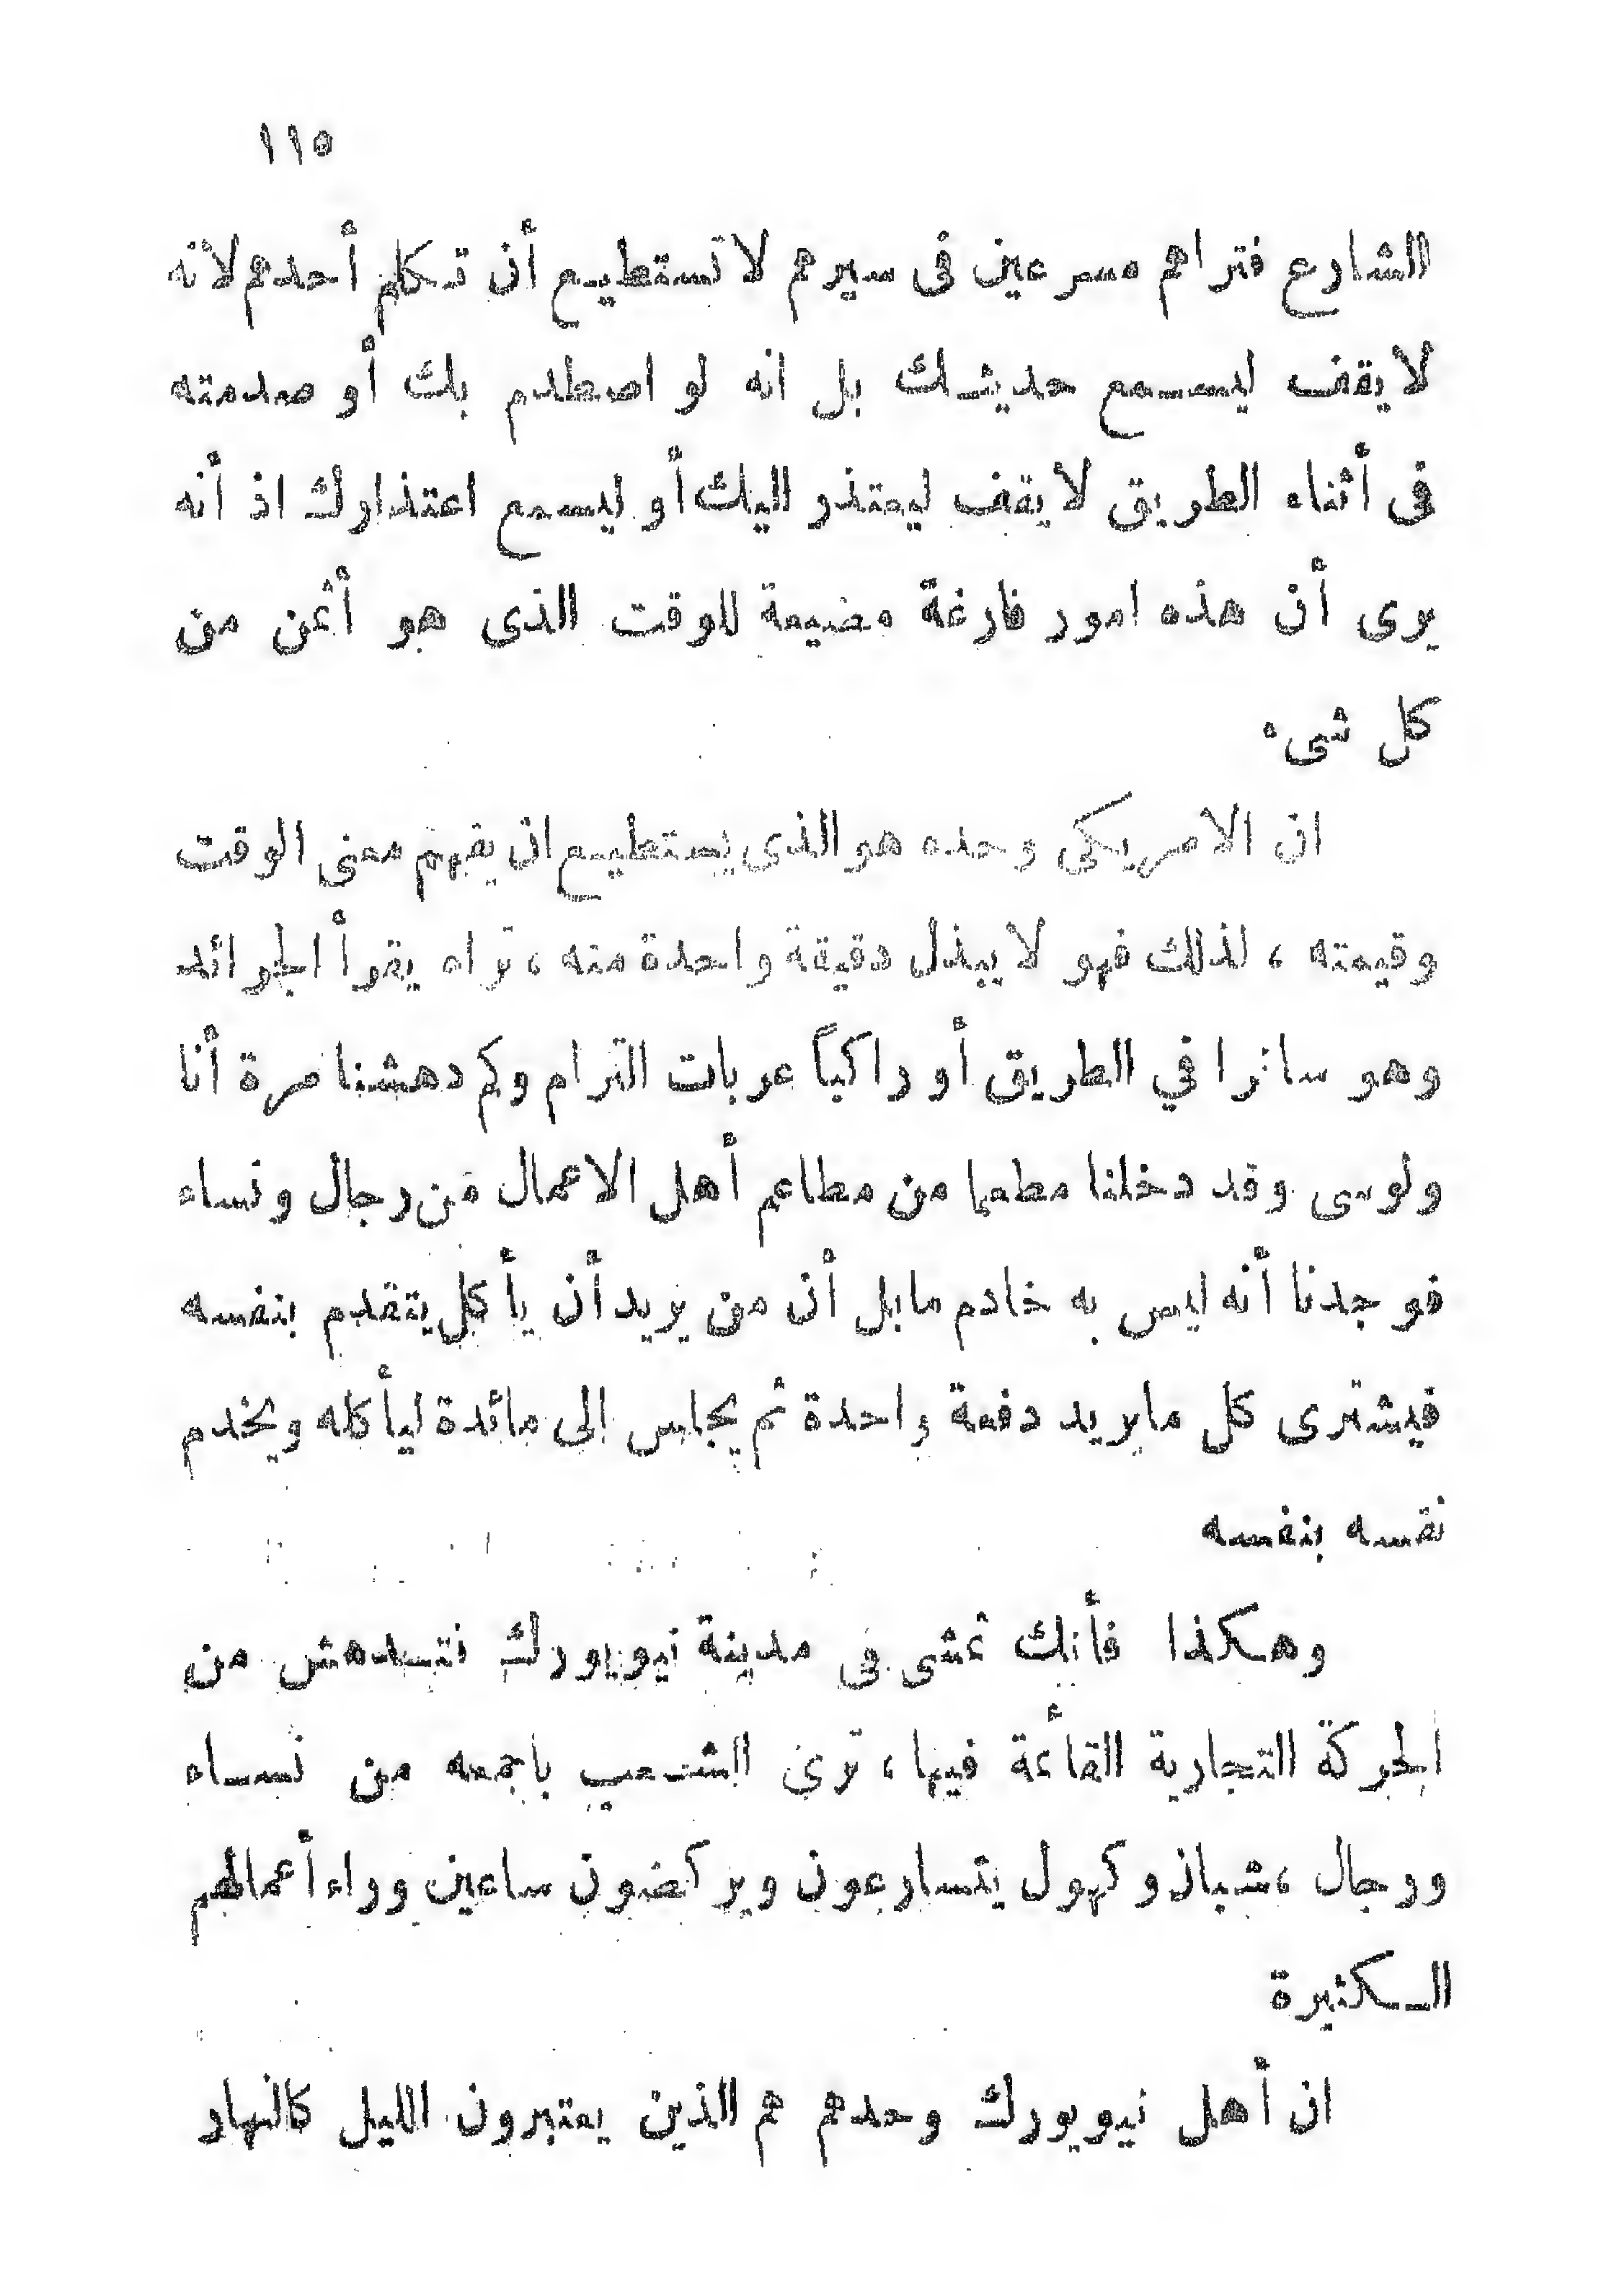 ١١٥
الشارع فتراهم مسرعين فى سيرهم لا تستطيع أن تكلم أحدهم لأنه
لا يقف ليسمع حديثك بل انه لو اصطدم بك أو صدمته
فى أثناء الطريق لا يقف ليعتذر اليك أو ليسمع اعتذارك اذ أنه
يرى أن هذه امور فارغة مضيعة للوقت الذى هو أثمن من
كل شىء
ان الامريكى وحده هو الذى يستطيع ان يفهم معنى الوقت
وقيمته ، لذلك فهو لا يبذل دقيقة واحدة منه ، تراه يقرأ الجرائد
وهو سائرا في الطريق أو راكباً عربات الترام وكم دهشنا مرة أنا
ولوسى وقد دخلنا مطعما من مطاعم أهل الاعمال من رجال ونساء
فوجدنا أنه ليس به خادم ما بل أن من يريد أن يأكل يتقدم بنفسه
فيشترى كل ما يريد دفعة واحدة ثم يجلس إلى مائدة ليأكله ويخدم
نفسه بنفسه
وهكذا فأنك تمشى فى مدينة نيويورك فتدهش من
الحركة التجارية القائمة فيها ، ترى الشعب باجمعه من نساء
ورجال ، شبان وكهول يتسارعون ويركضون ساعين وراء أعمالهم
الكثيرة
ان أهل نيويورك وحدهم هم الذين يعتبرون الليل كالنهار